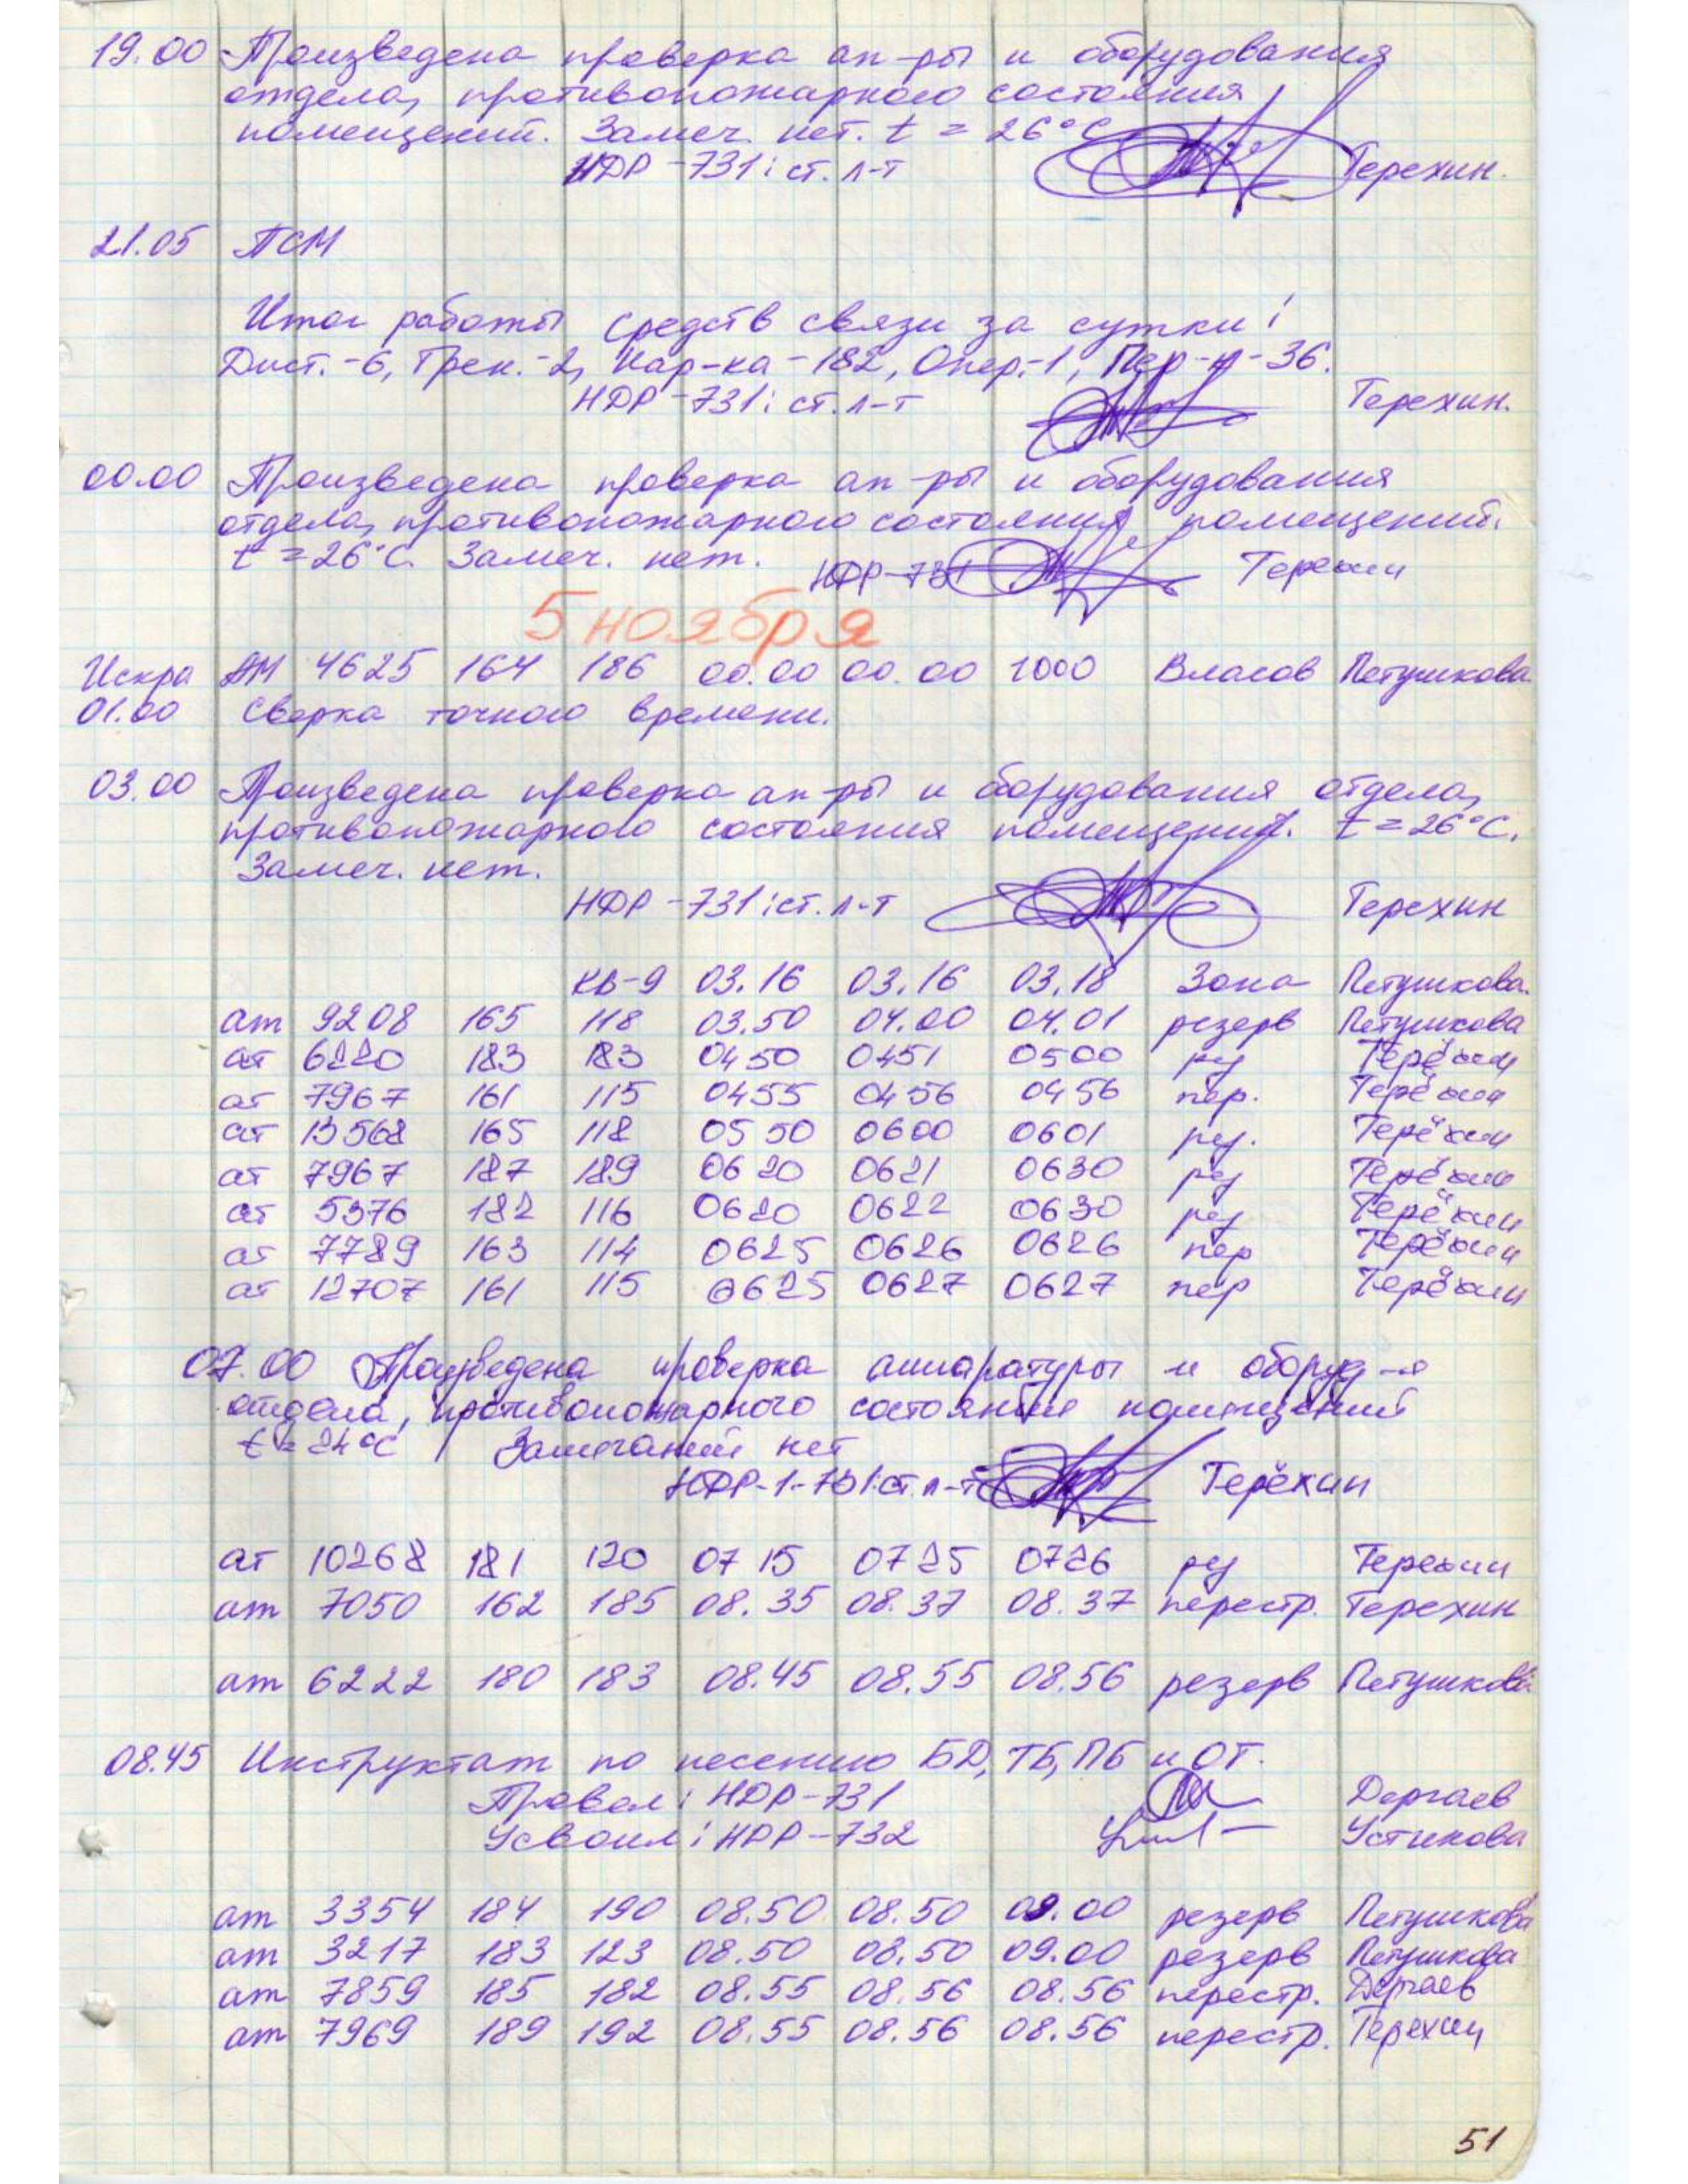 19.00 Произведена проверка ап-ры и оборудования
отдела, противопожарного состояния
помещений. Замеч. нет. t = 26°C
НДР-731: ст. л-т Терехин.
21.05 ПСМ
Итог работы средств связи за сутки:
Дист.-6, Трен.-2, Кар-ка-182, Опер.-1, Пер-к-36.
НДР-731: ст. л-т Терехин.
00.00 Произведена проверка ап-ры и оборудования
отдела, противопожарного состояния помещений.
t = 26°C. Замеч. нет. НДР-731 Терехин
5 ноября
Искра АМ 4625 164 186 00.00 00.00 1000 Власов Петушкова
01.00 Сверка точного времени.
03.00 Произведена проверка ап-ры и оборудования отдела,
противопожарного состояния помещений. t = 26°C.
Замеч. нет.
НДР-731: ст. л-т Терехин
КВ-9 03.16 03.16 03.18 Зона Петушкова.
ат 9208 165 118 03.50 04.00 04.01 резерв Петушкова
ат 6220 183 183 0450 0451 0500 рез Терёхин
ат 7967 161 115 0455 0456 0456 пер. Терёхин
ат 13568 165 118 0550 0600 0601 рез. Терёхин
ат 7967 187 189 0620 0621 0630 рез Терёхин
ат 5376 182 116 0620 0622 0630 рез Терёхин
ат 7789 163 114 0625 0626 0626 пер Терёхин
ат 12707 161 115 0625 0627 0627 пер Терёхин
07.00 Произведена проверка аппаратуры и оборуд-я
отдела, противопожарного состояния помещений
t = 24°C Замечаний нет
НДР-1-731: ст. л-т Терёхин
ат 10268 181 120 0715 0725 0726 рез Терехин
ат 7050 162 185 08.35 08.37 08.37 перестр. Терехин
ат 6222 180 183 08.45 08.55 08.56 резерв Петушкова
08.45 Инструктаж по несению БД, ТБ, ПБ и ОТ.
Провел: НДР-731 Дергаев
Усвоил: НДР-732 Устинова
ат 3354 184 190 08.50 08.50 09.00 резерв Петушкова
ат 3217 183 123 08.50 08.50 09.00 резерв Петушкова
ат 7859 185 182 08.55 08.56 08.56 перестр. Дергаев
ат 7969 189 192 08.55 08.56 08.56 перестр. Терехин
51